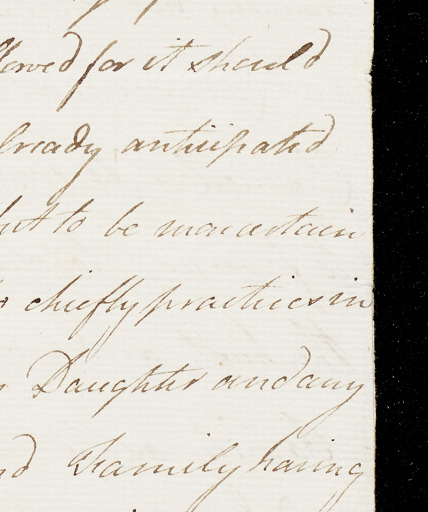 lowed for it should
lready anticipated
but to be more certain
chiefly practices in
Daughter and any
nd Family having